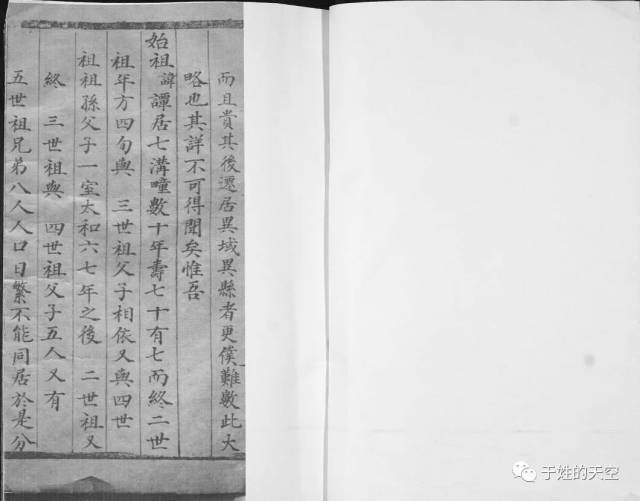 而且貴其後遷居異域異縣者更僕難數此大
略也其詳不可得聞矣惟吾
始祖諱譚居七溝疃數十年壽七十有七而終二世
祖年方四旬與 三世祖父子相依又與四世
祖祖孫父子一室太和六七年之後 二世祖又
終 三世祖與 四世祖父子五人又有
五世祖兄弟八人人口日繁不能同居於是分
于姓的天空